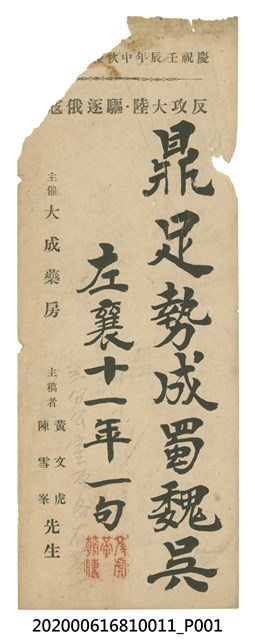 慶祝壬辰年中秋
反攻大陸・驅逐俄寇
鼎足勢成蜀魏吳
左襄十一年一句
主催 大成藥房
主稿者 黃文虎 陳雪峯 先生
202000616810011_P001